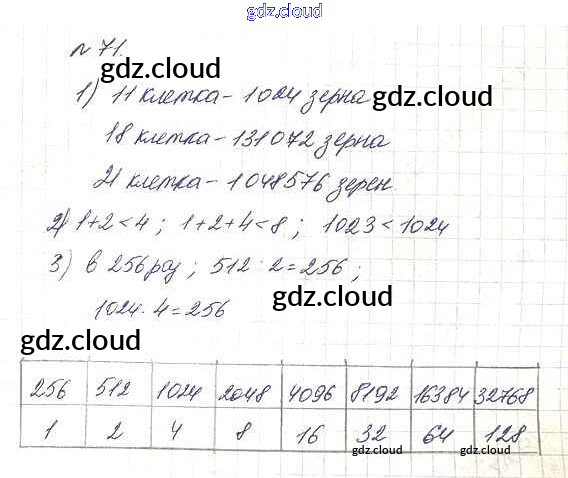 gdz.cloud
№ 71.
gdz.cloud
1) 11 клетка – 1024 зерна
gdz.cloud
18 клетка – 131072 зерна
21 клетка – 1048576 зерен
2) 1+2<4 ; 1+2+4<8 ; 1023<1024
3) в 256 раз ; 512 : 2 = 256 ;
gdz.cloud
1024 : 4 = 256
gdz.cloud
256 512 1024 2048 4096 8192 16384 32768
1 2 4 8 16 32 64 128
gdz.cloud gdz.cloud